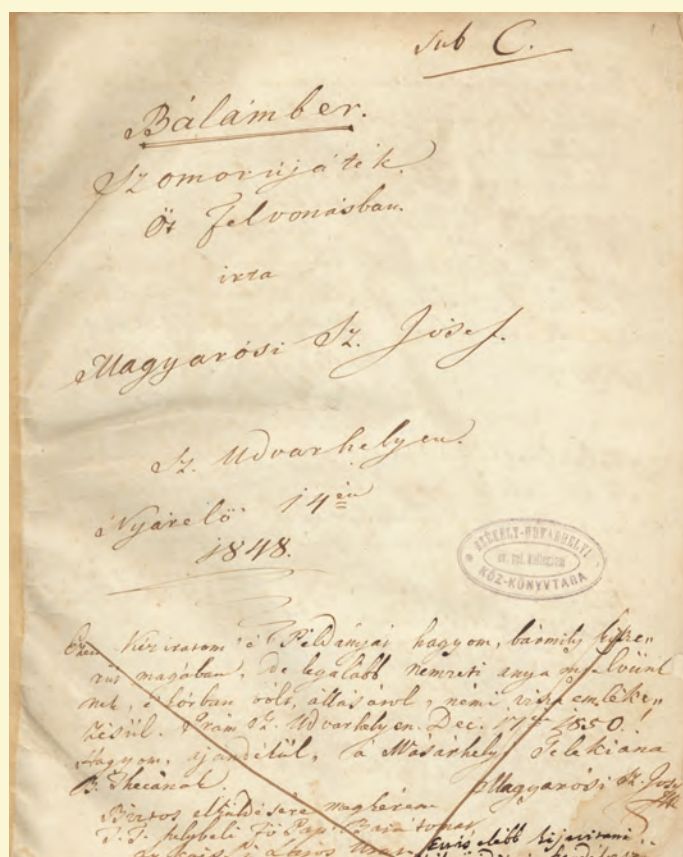 Sub C.
Bálámber.
Szomorújáték.
Öt felvonásban.
irta
Magyarósi Sz. Jósef.
Sz. Udvarhelyen.
Nyárelő 14én
1848.
SZÉKELY-UDVARHELYI
ev. ref. kollegium
KÖZ-KÖNYVTARA
Ezen Kéziratom é Példányát hagyom, bármily
magában, de legalább nemzeti anya nyelvünk„
nek, é korban volt, állásáról, némi visza emléke„
zésül. Irám Sz. Udvarhelyen. Dec. 17én 1850.
Hagyom, ajándékúl, a Másárhelyi Telekiana
B. Thecának. Magyarósi Sz. Josef
Biztos elküldésére megkérem
T. T. helybeli Fő Pap Barátomat
Lajos Urat. Ennél előbb kijavitani